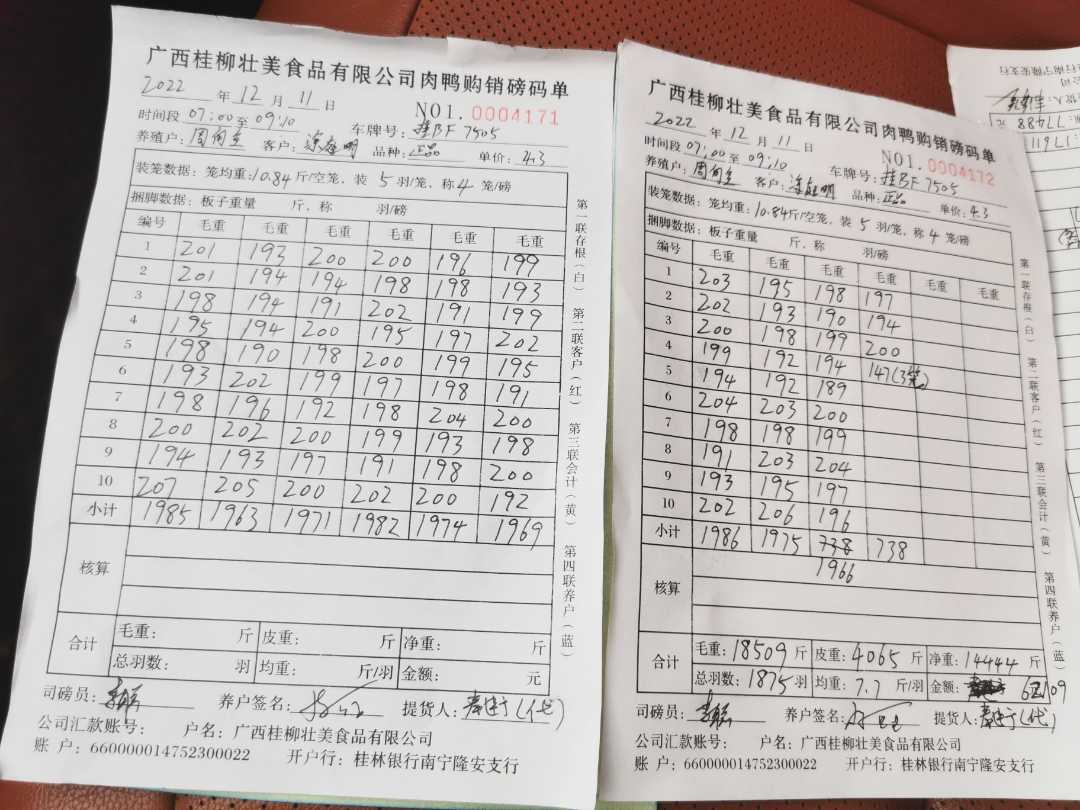 广西桂柳壮美食品有限公司肉鸭购销磅码单
2022 年 12 月 11 日 NO1. 0004171
时间段 07:00至 09:10 车牌号: 桂BF 7505
养殖户: 客户: 品种: 正品 单价: 4.3
装笼数据: 笼均重: 10.84 斤/空笼, 装 5 羽/笼, 称 4 笼/磅
捆脚数据: 板子重量 斤, 称 羽/磅
编号 毛重 毛重 毛重 毛重 毛重 毛重
1 201 193 200 200 196 199
2 201 194 194 198 198 193
3 198 194 191 202 191 199
4 195 194 200 195 197 202
5 198 190 198 200 199 195
6 193 202 199 197 198 191
7 198 196 192 198 204 200
8 200 202 200 199 193 198
9 194 193 197 191 198 200
10 207 205 200 202 200 192
小计 1985 1963 1971 1982 1974 1969
核算
合计 毛重: 斤 皮重: 斤 净重: 斤
总羽数: 羽 均重: 斤/羽 金额: 元
司磅员: 养户签名: 提货人: (代)
公司汇款账号: 户名: 广西桂柳壮美食品有限公司
账 户: 660000014752300022 开户行: 桂林银行南宁隆安支行
第一联存根(白) 第二联客户(红) 第三联会计(黄) 第四联养户(蓝)
广西桂柳壮美食品有限公司肉鸭购销磅码单
2022 年 12 月 11 日 NO1. 0004172
时间段 07:00 至 09:10 车牌号: 桂BF 7505
养殖户: 客户: 品种: 正品 单价: 4.3
装笼数据: 笼均重: 10.84 斤/空笼, 装 5 羽/笼, 称 4 笼/磅
捆脚数据: 板子重量 斤, 称 羽/磅
编号 毛重 毛重 毛重 毛重 毛重 毛重
1 203 195 198 197
2 202 193 190 194
3 200 198 199 200
4 199 192 194 147(3笼)
5 194 192 189
6 204 203 200
7 198 198 199
8 191 203 204
9 193 195 197
10 202 206 196
小计 1986 1975 738 738
1966
核算
合计 毛重: 18509 斤 皮重: 4065 斤 净重: 14444 斤
总羽数: 1875 羽 均重: 7.7 斤/羽 金额: 62109
司磅员: 养户签名: 提货人: (代)
公司汇款账号: 户名: 广西桂柳壮美食品有限公司
账 户: 660000014752300022 开户行: 桂林银行南宁隆安支行
第一联存根(白) 第二联客户(红) 第三联会计(黄) 第四联养户(蓝)